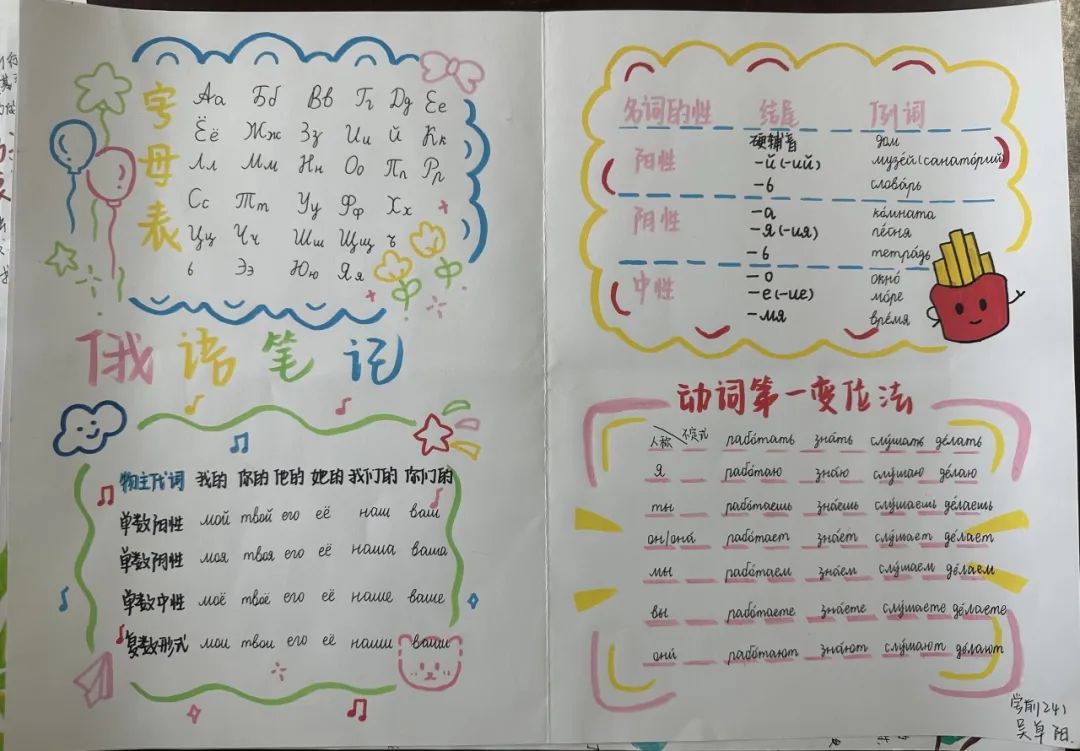 字母表
Аа Бб Вв Гг Дд Ее
Ёё Жж Зз Ии й Кк
Лл Мм Нн Оо Пп Рр
Сс Тт Уу Фф Хх
Цц Чч Шш Щщ ъ
ь Ээ Юю Яя
俄语笔记
物主代词 我的 你的 他的 她的 我们的 你们的
单数阳性 мой твой его её наш ваш
单数阴性 моя твоя его её наша ваша
单数中性 моё твоё его её наше ваше
复数形式 мои твои его её наши ваши
名词的性 结尾 例词
硬辅音 дом
阳性 -й(-ий) музе́й(санато́рий)
-ь слова́рь
阴性 -а ко́мната
-я(-ия) пе́сня
-ь тетра́дь
中性 -о окно́
-е(-ие) мо́ре
-мя вре́мя
动词第一变位法
人称 不定式 рабо́тать зна́ть слу́шать де́лать
я рабо́таю зна́ю слу́шаю де́лаю
ты рабо́таешь зна́ешь слу́шаешь де́лаешь
он/она́ рабо́тает зна́ет слу́шает де́лает
мы рабо́таем зна́ем слу́шаем де́лаем
вы рабо́таете зна́ете слу́шаете де́лаете
они́ рабо́тают зна́ют слу́шают де́лают
学前241
吴卓阳